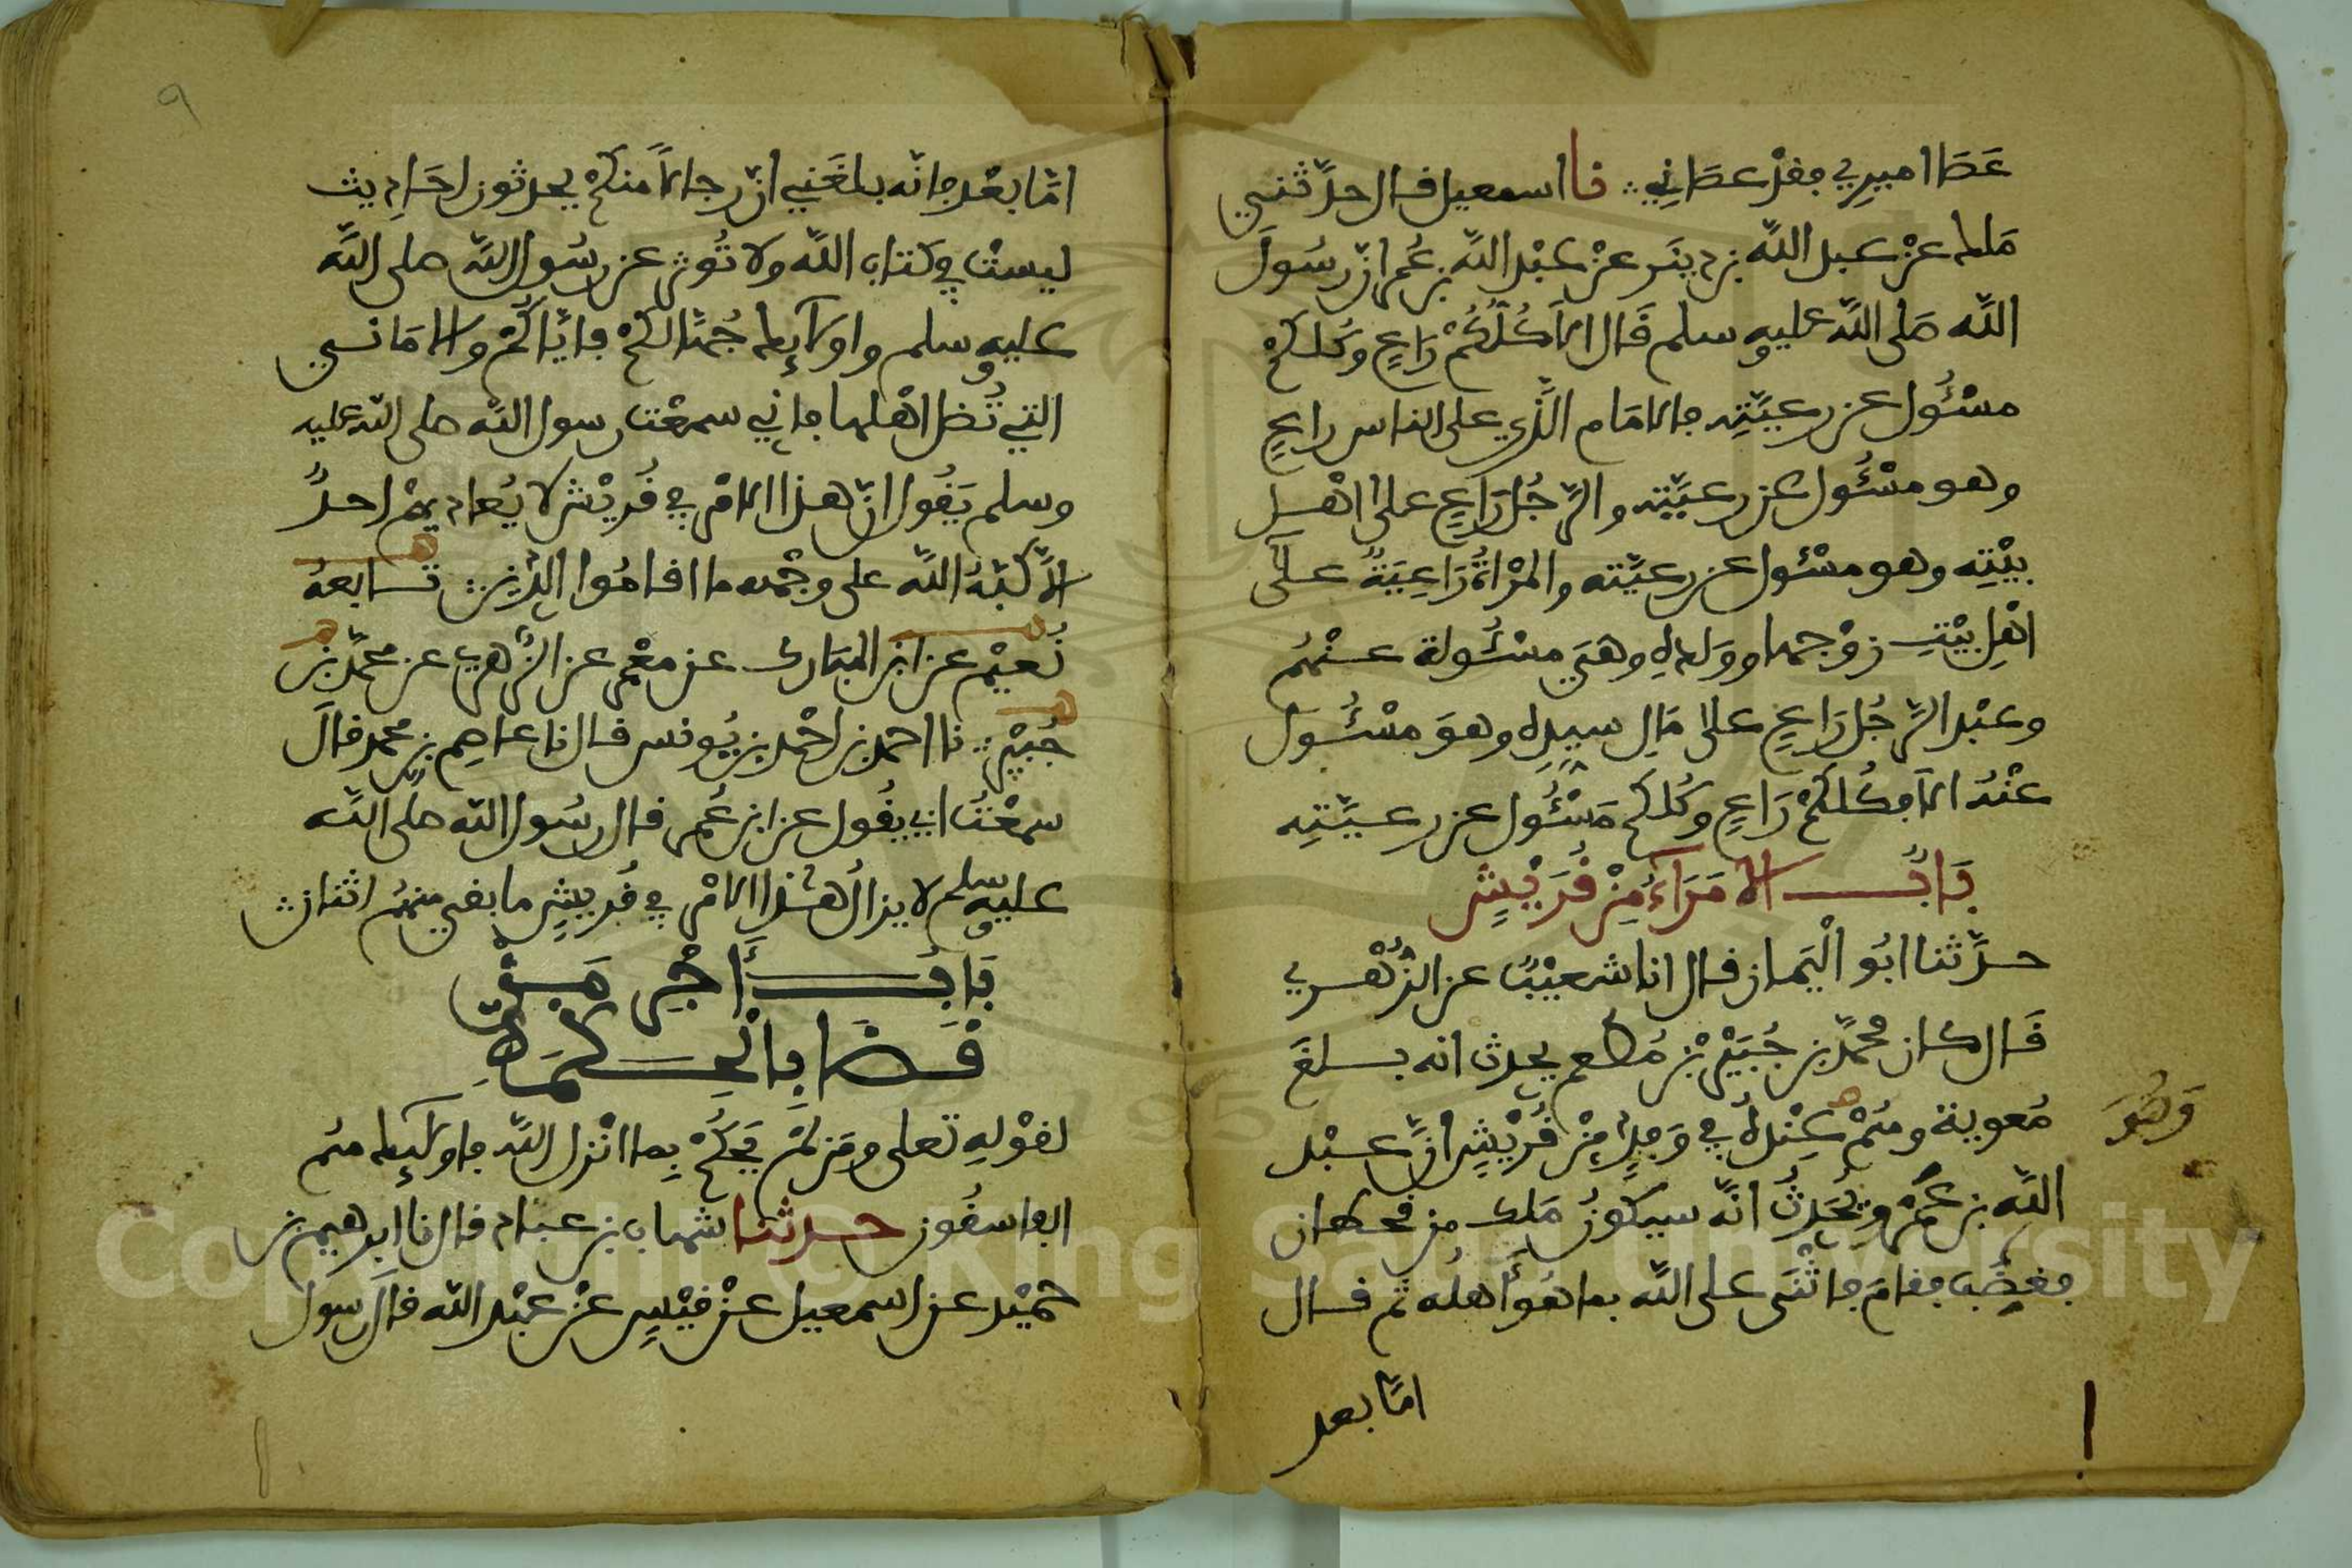 عَصَا اميرِي فقدْ عصَانِي ؞ نا اسمعيل قال حدَّثني
مَلك عنْ عبد اللّه بن دينَر عنْ عبْد اللّه بن عُمر انّ رسُولَ
اللّه صَلى اللّه عليه وسلم قَال الاَ كُلُّكُمْ رَاعٍ وكُلكمْ
مسْئُول عن رعيَّتِه فالامَام الَّذي على الناس راعٍ
وهو مسْئُول عن رعيَّتِه والرّجُل رَاعٍ على اهْل
بيْتِه وهو مسْئول عن رعيَّته والمرْاةُ رَاعِيَةٌ علَى
اهْلِ بيْتِ زوْجها وولده وهيَ مسْئُولة عنْهُم
وعبْد الرّجُل رَاعٍ على مَالِ سيدِه وهوَ مسْئُول
عنْهُ الاَ فكُلكمْ رَاعٍ وكُلكم مَسْئُول عن رعيَّتِه
بَابُ الامَرَاءُ مِنْ قُرَيْشٍ
حدَّثنا ابُو الْيَمان قال انا شعيْبٌ عن الزُّهْري
قَال كان محمَّد بن جُبَيْر بْن مُطعم يحدث انه بلغَ
مُعوية وهُمْ عِنْدهُ في وَفدٍ مِنْ قُرَيْشٍ انَّ عبْد
وَهُوَ
اللّه بن عَمْرو يُحَدِثُ انَّه سيكونُ مَلك من قحطان
فغضِبَ فقامَ فاثْنَى على اللّه بما هُوَ أَهلُه ثم قال
امَّا بعد
٩
امَّا بعْد فانّه بلغَني انّ رجالاً منكمْ يحدثون احَاديث
ليستْ في كتاب اللّه ولا تُوثر عن رسُول اللّه صلى اللّه
عليه وسلم واولآئِك جُهَّالكمْ فايَّاكُمْ والامَاني
التي تُضل اهْلها فاني سمعْت رسول اللّه صلى اللّه عليه
وسلم يَقُول انّ هذا الامْر في قُريْش لا يُعاديهمْ احدٌ
الاَّ كبّهُ اللّه على وجْهه ما اقامُوا الدّين ؞ تابعهُ
نُعيْم عن ابن المبَارك عن معْمر عن الزُّهري عن محمّد بن
جُبيْر ؞ نا احمد بن احْمد بن يُونس قال نا عاصِم بن محمد قالَ
سمعْتُ ابي يقُول عن ابن عُمر قال رسُول اللّه صلى اللّه
عليه وسلم لا يزالُ هٰذا الامْر في قُريشٍ ما بقي منهُم اثنان ؞
بَابُ أَجْرِ مَنْ
قَضَا بِالْحِكْمَةِ
لقوْلِهِ تعلى ومَن لمْ يَحكُمْ بِما انْزل اللّه فاولَئِك هُم
الفاسقُون حدثنا شهاب بن عبَاد قال نا ابرهيم بن
حمَيْد عن اسمعيل عنْ قيْسٍ عنْ عبْد اللّه قالَ رسول